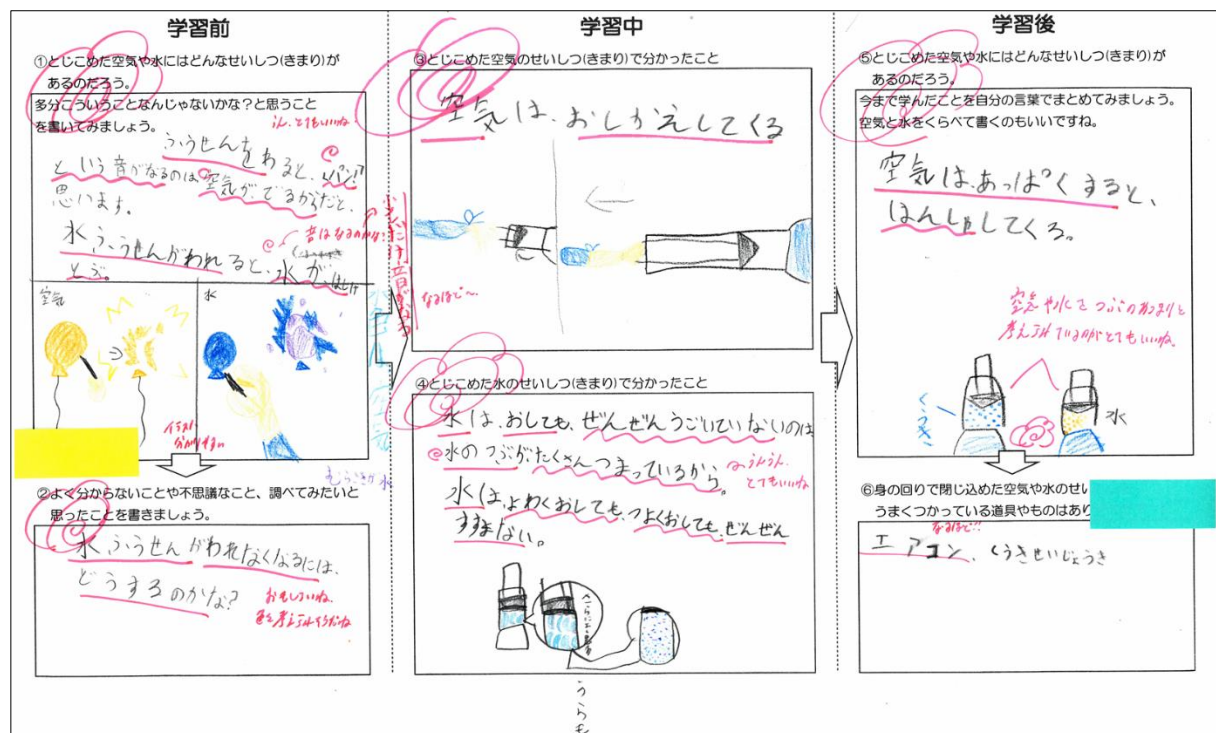 学習前
①とじこめた空気や水にはどんなせいしつ(きまり)が
あるのだろう。
多分こういうことなんじゃないかな？と思うこと
を書いてみましょう。
うん、とてもいいね
ふうせんをわると、「パン!!」
という音がなるのは空気が、でるからだと、
思います。
音はなるのかな？
水ふうせんがわれると、水が、はじけ
とぶ。
空気
水
イラスト
分かりやすい
②よく分からないことや不思議なこと、調べてみたいと
思ったことを書きましょう。
水ふうせんがわれなくなるには、
どうするのかな？
おもしろいね。
学習中
③とじこめた空気のせいしつ(きまり)で分かったこと
空気は、おしかえしてくる
なるほど〜
④とじこめた水のせいしつ(きまり)で分かったこと
水は、おしても、ぜんぜんうごいていないのは
水のつぶが、たくさんつまっているから。
うんうん、
とてもいいね
水は、よわくおしても、つよくおしても、ぜんぜん
すすまない。
うらも
学習後
⑤とじこめた空気や水にはどんなせいしつ(きまり)が
あるのだろう。
今まで学んだことを自分の言葉でまとめてみましょう。
空気と水をくらべて書くのもいいですね。
空気は、あっぱくすると、
はんしゃしてくる。
空気や水をつぶのあつまりと
考えているのがとてもいいね。
くうき
水
⑥身の回りで閉じ込めた空気や水のせい
うまくつかっている道具やものはあり
なるほど!!
エアコン、くうきせいじょうき